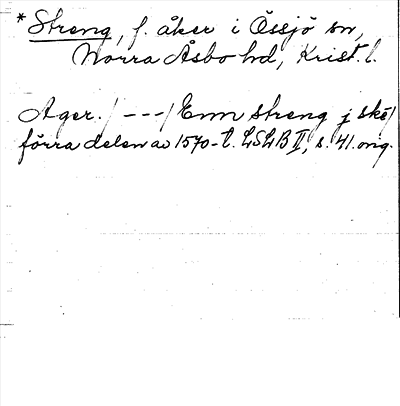 * Streng, f. åker i Össjö sn,
Norra Åsbo hd, Krist. l.
Ager. / - - - / Enn streng j skö/
förra delen av 1570-t. LSLB II, s. 41. orig.